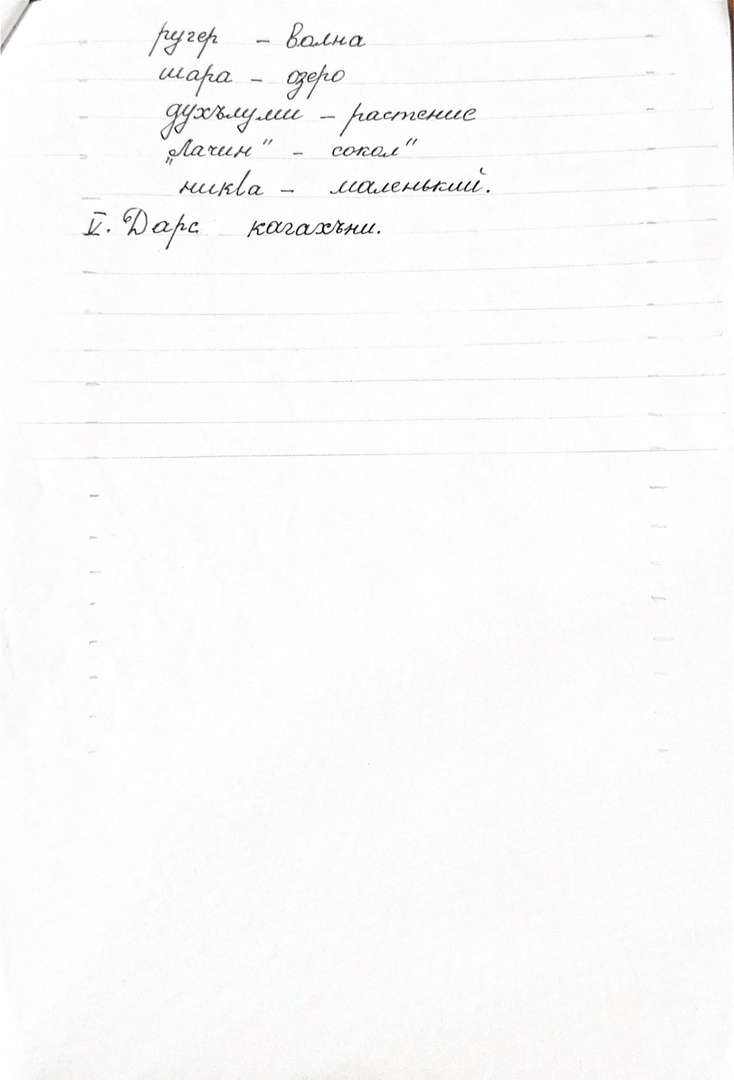 ругер – волна
шара – озеро
духълуми – растение
„Лачин" – сокол"
никIа – маленький.
V. Дарс кагахъни.